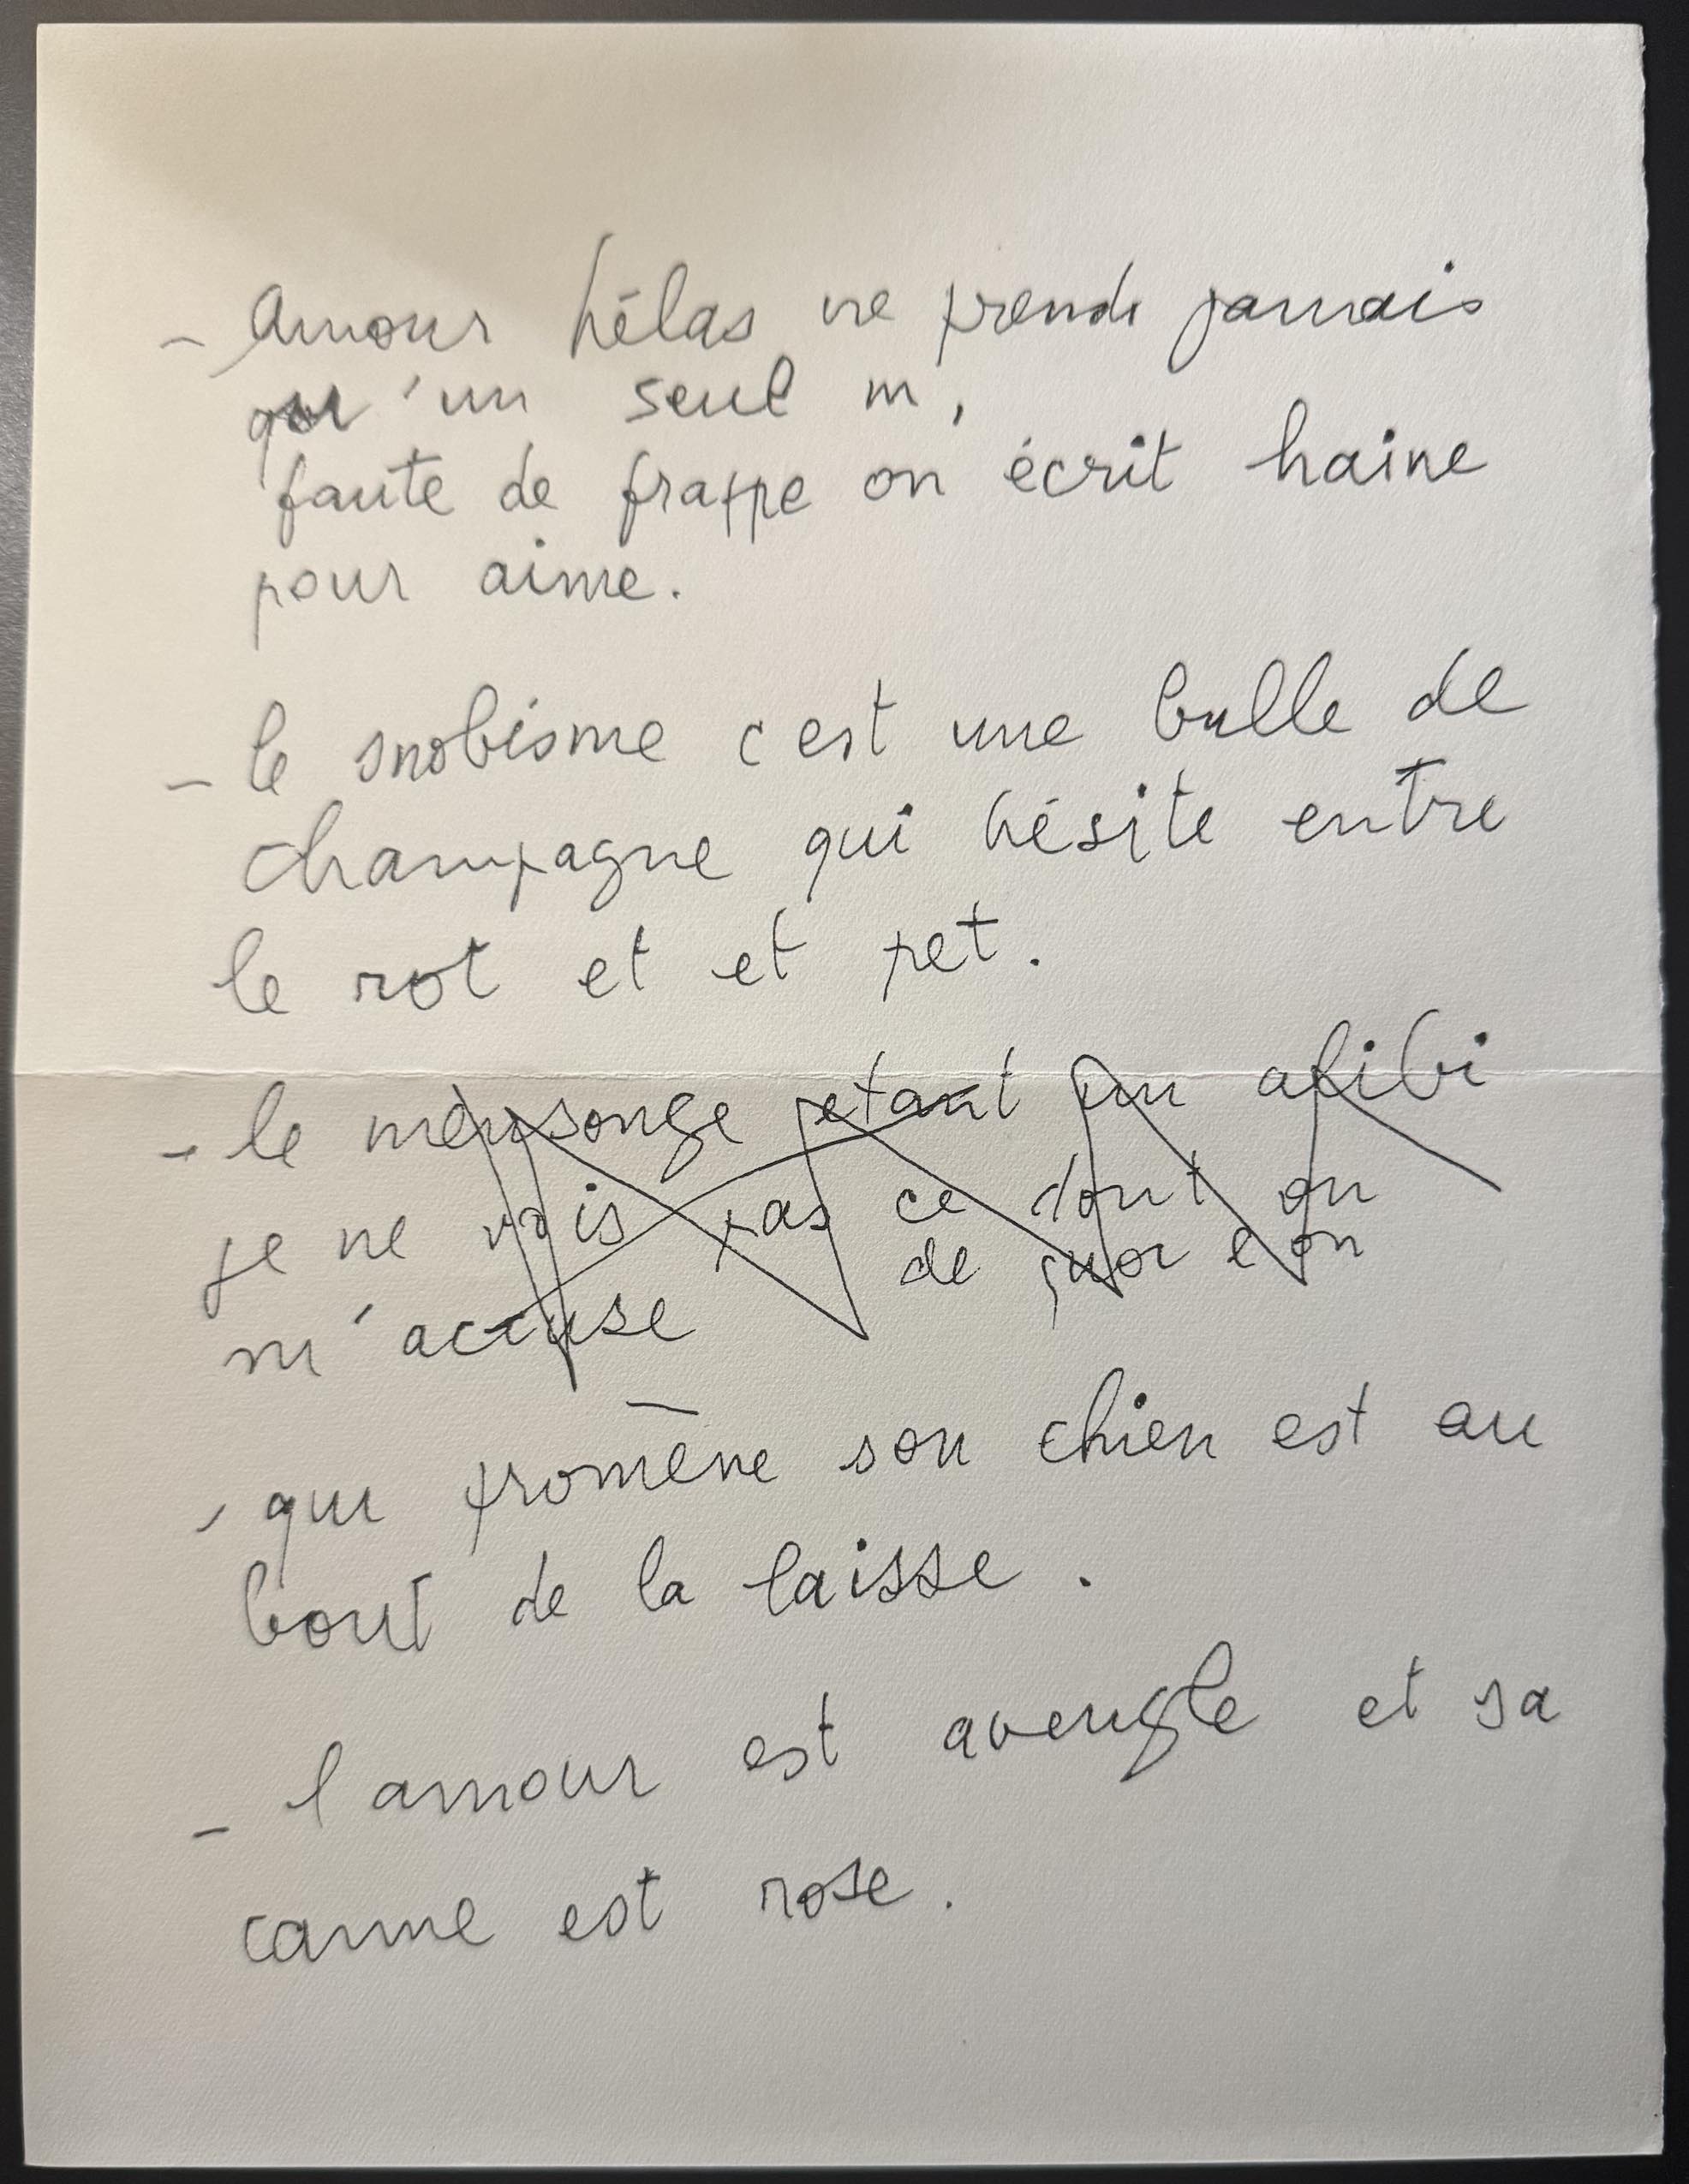 - Amour hélas ne prends jamais
qu'un seul m,
faute de frappe on écrit haine
pour aime.
- le snobisme c'est une bulle de
champagne qui hésite entre
le rot et et pet.
- le mensonge etant un alibi
je ne vois pas ce dont on
de quoi l on
m'accuse
- qui promène son chien est au
bout de la laisse.
- l amour est aveugle et sa
canne est rose.